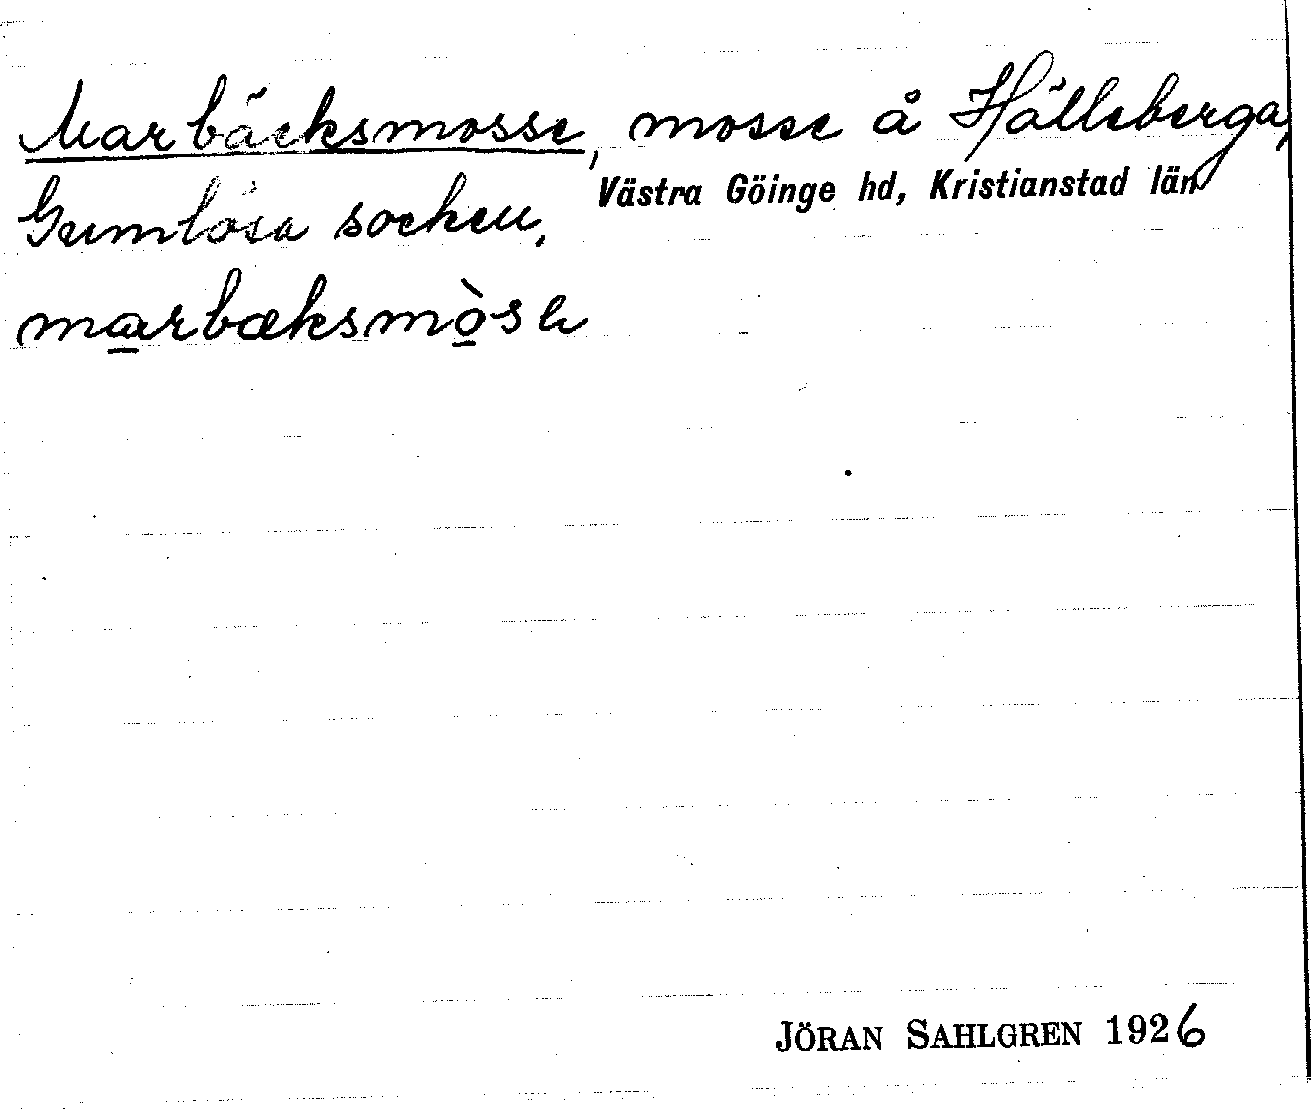 Marbäcksmosse, mosse å Hälleberga,
Gumlösa socken, Västra Göinge hd, Kristianstad län
marbæksmòsə
JÖRAN SAHLGREN 1926